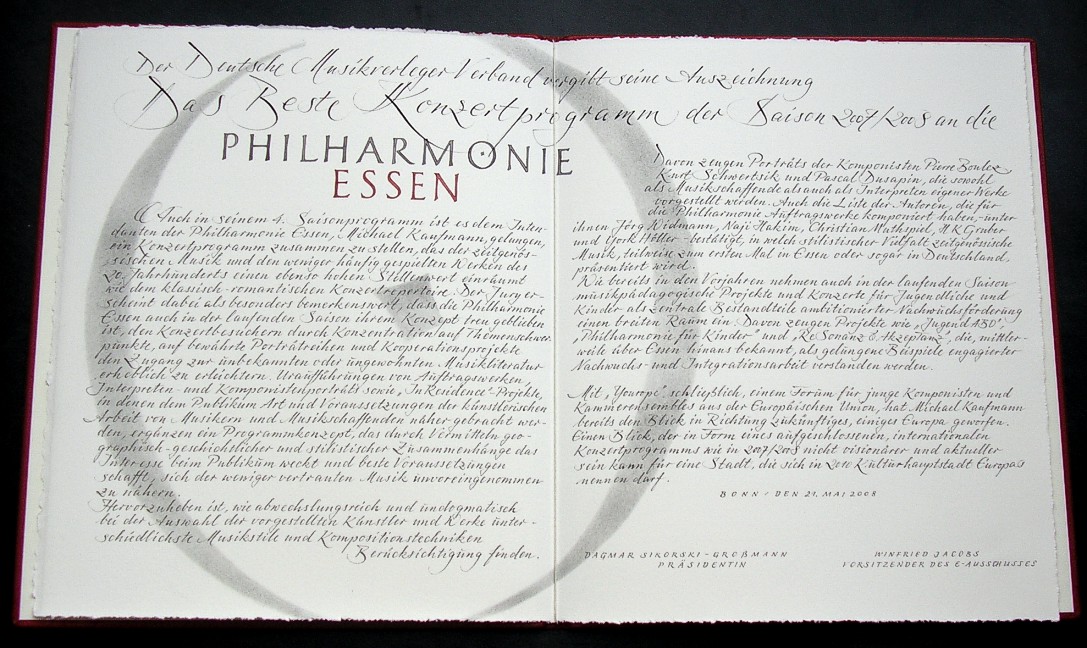 Der Deutsche Musikverleger Verband vergibt seine Auszeichnung
Das Beste Konzertprogramm der Saison 2007/2008 an die
PHILHARMONIE
ESSEN
Auch in seinem 4. Saisonprogramm ist es dem Inten-
danten der Philharmonie Essen, Michael Kaufmann, gelungen,
ein Konzertprogramm zusammen zu stellen, das der zeitgenös-
sischen Musik und den weniger häufig gespielten Werken des
20. Jahrhunderts einen ebenso hohen Stellenwert einräumt
wie dem klassisch-romantischen Konzertrepertoire. Der Jury er-
scheint dabei als besonders bemerkenswert, dass die Philharmonie
Essen auch in der laufenden Saison ihrem Konzept treu geblieben
ist, den Konzertbesuchern durch Konzentration auf Themenschwer-
punkte, auf bewährte Porträtreihen und Kooperationsprojekte
den Zugang zur unbekannten oder ungewohnten Musikliteratur
erheblich zu erleichtern. Uraufführungen von Auftragswerken,
Interpreten- und Komponistenporträts sowie „In Residence"-Projekte,
in denen dem Publikum Art und Voraussetzungen der künstlerischen
Arbeit von Musikern und Musikschaffenden näher gebracht wer-
den, ergänzen ein Programmkonzept, das durch Vermitteln geo-
graphisch-geschichtlicher und stilistischer Zusammenhänge das
Interesse beim Publikum weckt und beste Voraussetzungen
schafft, sich der weniger vertrauten Musik unvoreingenommen
zu nähern.
Hervorzuheben ist, wie abwechslungsreich und undogmatisch
bei der Auswahl der vorgestellten Künstler und Werke unter-
schiedlichste Musikstile und Kompositionstechniken
Berücksichtigung finden.
Davon zeugen Porträts der Komponisten Pierre Boulez
Kurt Schwertsik und Pascal Dusapin, die sowohl
als Musikschaffende als auch als Interpreten eigener Werke
vorgestellt werden. Auch die Liste der Autoren, die für
die Philharmonie Auftragswerke komponiert haben,-unter
ihnen Jörg Widmann, Naji Hakim, Christian Muthspiel, HK Gruber
und York Höller-bestätigt, in welch stilistischer Vielfalt zeitgenössische
Musik, teilweise zum ersten Mal in Essen oder sogar in Deutschland,
präsentiert wird.
Wie bereits in den Vorjahren nehmen auch in der laufenden Saison
musikpädagogische Projekte und Konzerte für Jugendliche und
Kinder als zentrale Bestandteile ambitionierter Nachwuchsförderung
einen breiten Raum ein. Davon zeugen Projekte wie „Jugend ABO",
„Philharmonie für Kinder" und „ReSonanz & Akzeptanz", die, mittler-
weile über Essen hinaus bekannt, als gelungene Beispiele engagierter
Nachwuchs- und Integrationsarbeit verstanden werden.
Mit „Yourope", schließlich, einem Forum für junge Komponisten und
Kammerensembles aus der Europäischen Union, hat Michael Kaufmann
bereits den Blick in Richtung zukünftiges, einiges Europa geworfen.
Einen Blick, der in Form eines aufgeschlossenen, internationalen
Konzertprogramms wie in 2007/2008 nicht visionärer und aktueller
sein kann für eine Stadt, die sich in 2010 Kulturhauptstadt Europas
nennen darf.
BONN / DEN 21. MAI 2008
DAGMAR SIKORSKI-GROßMANN
PRÄSIDENTIN
WINFRIED JACOBS
VORSITZENDER DES E-AUSSCHUSSES